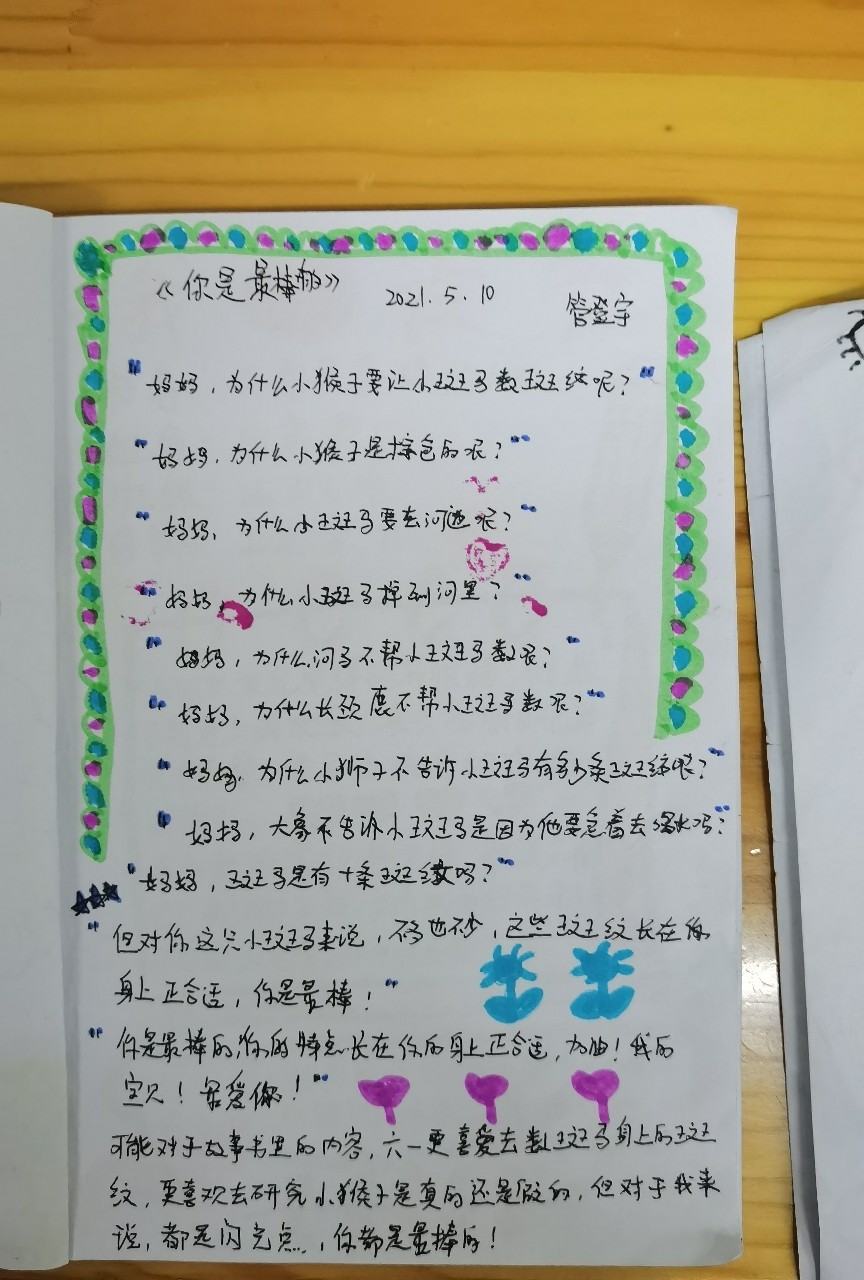 《你是最棒的》 2021.5.10 管登宇
"妈妈，为什么小猴子要让小斑马数斑纹呢？"
"妈妈，为什么小猴子是棕色的呢？"
"妈妈，为什么小斑马要去河边呢？"
"妈妈，为什么小斑马掉到河里？"
"妈妈，为什么河马不帮小斑马数呢？"
"妈妈，为什么长颈鹿不帮小斑马数呢？"
"妈妈，为什么小狮子不告诉小斑马有多少条斑纹呢？"
"妈妈，大象不告诉小斑马是因为他要急着去喝水吗？"
"妈妈，斑马是有十条斑纹吗？"
"但对你这只小斑马来说，不多也不少，这些斑纹长在你
身上正合适，你是最棒！"
"你是最棒的，你的特点长在你的身上正合适，加油！我的
宝贝！最爱你！"
可能对于故事书里的内容，六一更喜爱去数斑马身上的斑
纹，更喜欢去研究小猴子是真的还是假的，但对于我来
说，都是闪光点，你都是最棒的！